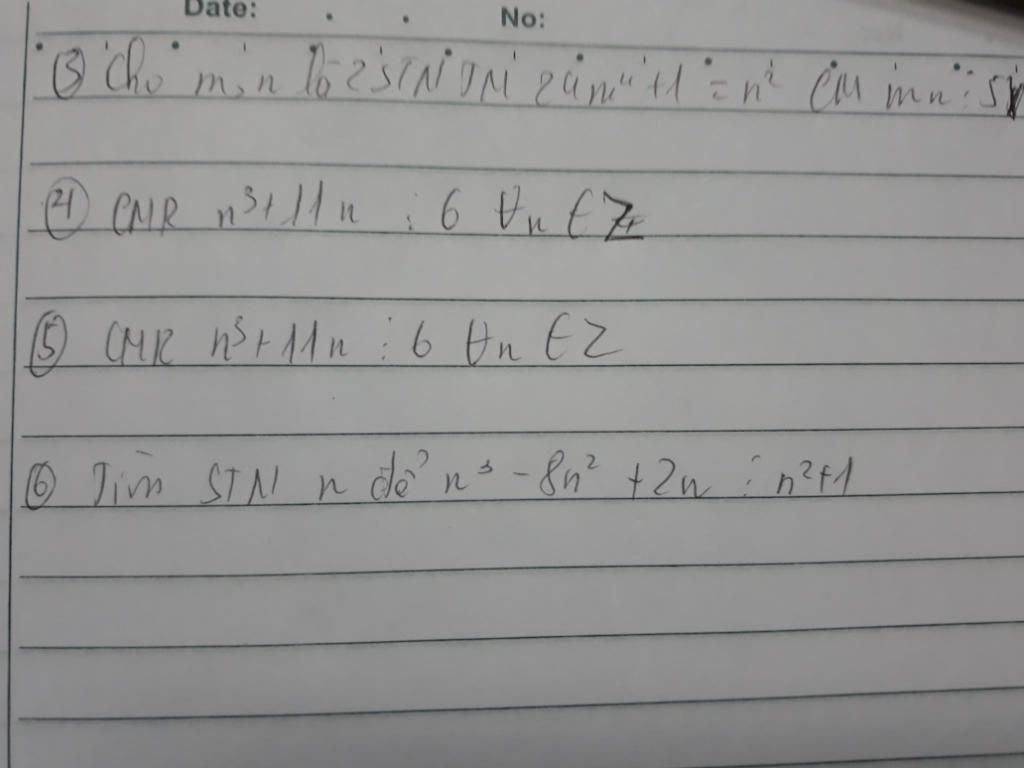 Date: . . No:
③ Cho m, n là 2 STN TM 24m⁴+1 = n² CM mn ⋮ 5
④ CMR n³+11n ⋮ 6 ∀n ∈ Z
⑤ CMR n³+11n ⋮ 6 ∀n ∈ Z
⑥ Tìm STN n để n³ - 8n² + 2n ⋮ n²+1